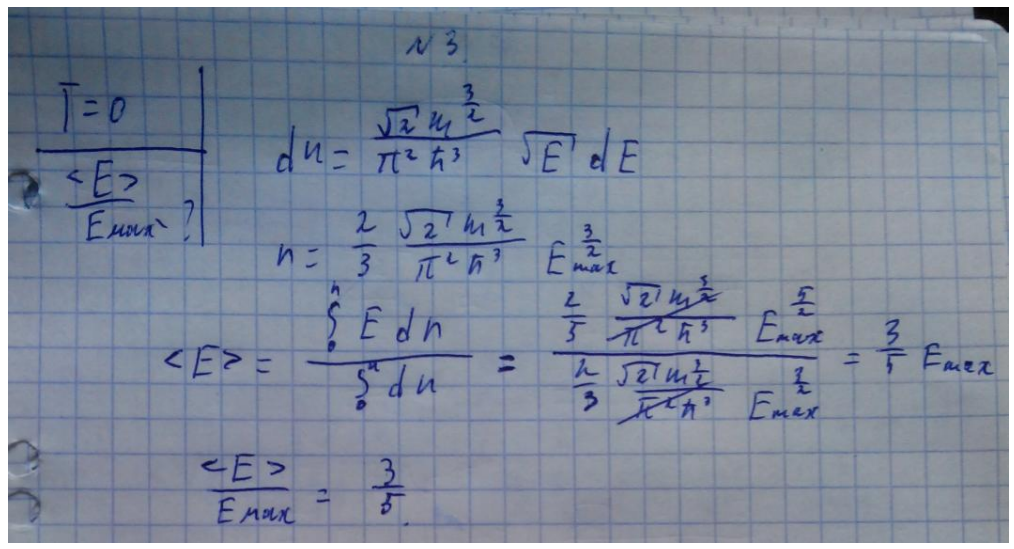 N 3
T = 0
<E>/Emax ?
dn = √2 m^(3/2) / π² ħ³ √E dE
n = 2/3 √2 m^(3/2) / π² ħ³ Emax^(3/2)
<E> = ∫₀ⁿ E dn / ∫₀ⁿ dn = 2/5 √2 m^(3/2) / π² ħ³ Emax^(5/2) / 2/3 √2 m^(3/2) / π² ħ³ Emax^(3/2) = 3/5 Emax
<E>/Emax = 3/5.